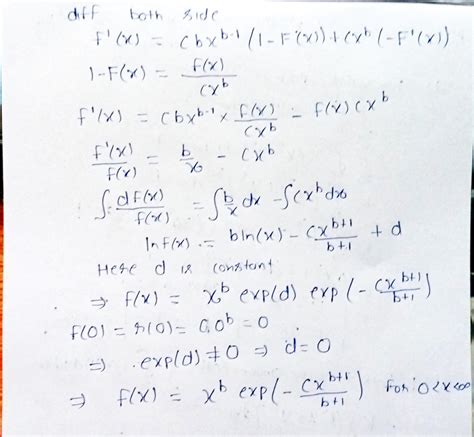 diff both side
f'(x) = cbx^{b-1} (1-F(x)) + cx^b (-F'(x))
1-F(x) = f(x)/cx^b
f'(x) = cbx^{b-1} × f(x)/cx^b - f(x) cx^b
f'(x)/f(x) = b/x - cx^b
∫ df(x)/f(x) = ∫ b/x dx - ∫ cx^b dx
ln f(x) = b ln(x) - cx^{b+1}/b+1 + d
Here d is constant
⇒ f(x) = x^b exp(d) exp(-cx^{b+1}/b+1)
f(0) = r(0) = c0^b = 0
⇒ exp(d) ≠ 0 ⇒ d = 0
⇒ f(x) = x^b exp(-cx^{b+1}/b+1) for 0<x<∞